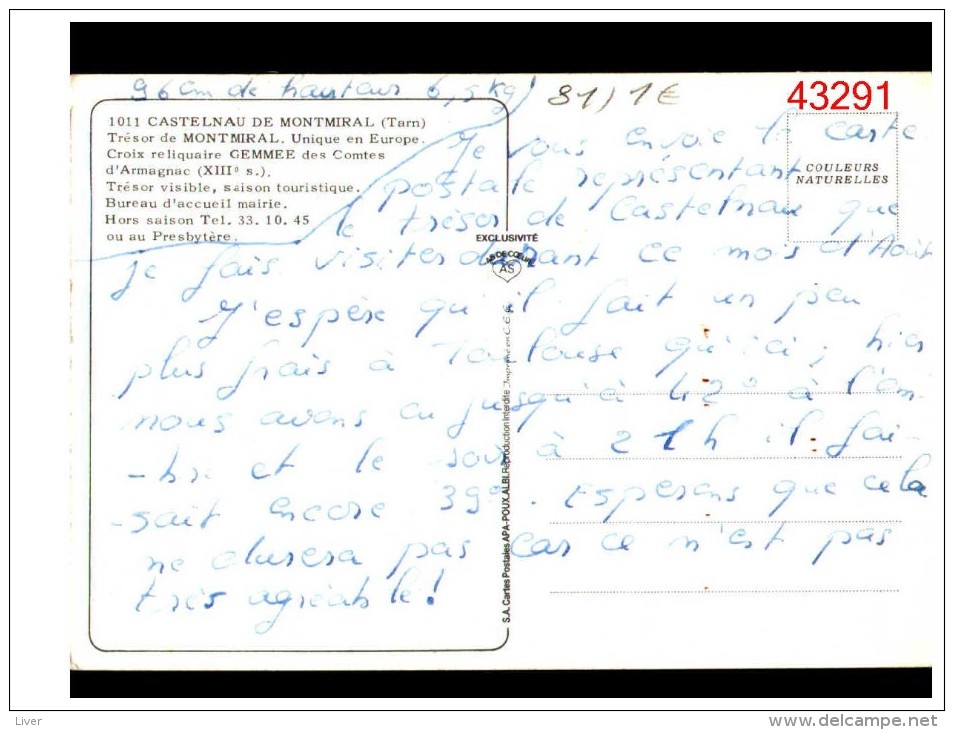 96 cm de hauteur 6,5 kg)
81) 1€
43291
1011 CASTELNAU DE MONTMIRAL (Tarn)
Trésor de MONTMIRAL. Unique en Europe.
Croix reliquaire GEMMEE des Comtes
d'Armagnac (XIIIº s.).
Trésor visible, saison touristique.
Bureau d'accueil mairie.
Hors saison Tel. 33. 10. 45
ou au Presbytère.
COULEURS
NATURELLES
EXCLUSIVITÉ
AS DE CŒUR
AS
S.A. Cartes Postales APA-POUX.ALBI.Reproduction Interdite Imprimé en C.E.E.
Je vous envoie la carte
postale représentant
le trésor de Castelnau que
je fais visiter durant ce mois d'Août
J'espère qu'il fait un peu
plus frais à Toulouse qu'ici; hier
nous avons eu jusqu'à 42° à l'om-
-bre et le soir à 21h il fai-
-sait encore 39°. Esperons que cela
ne durera pas car ce n'est pas
très agréable!
Liver
www.delcampe.net